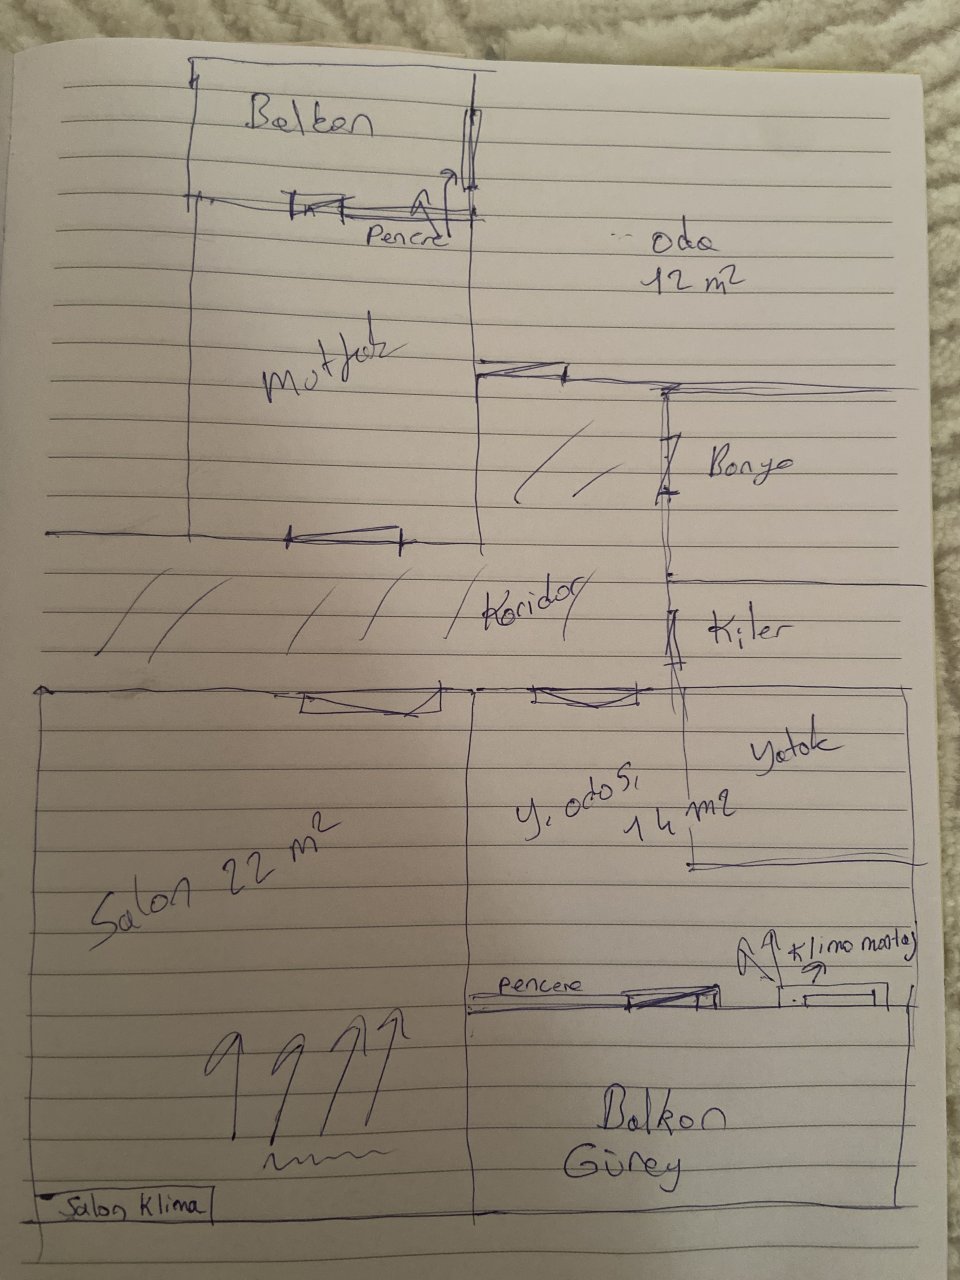 Balkon
Pencre
oda
12 m²
Mutfak
Banyo
Koridor
Kiler
Yatak
y. odası
14 m2
Salon 22 m²
Klima montaj
Pencere
Balkon
Güney
Salon Klima